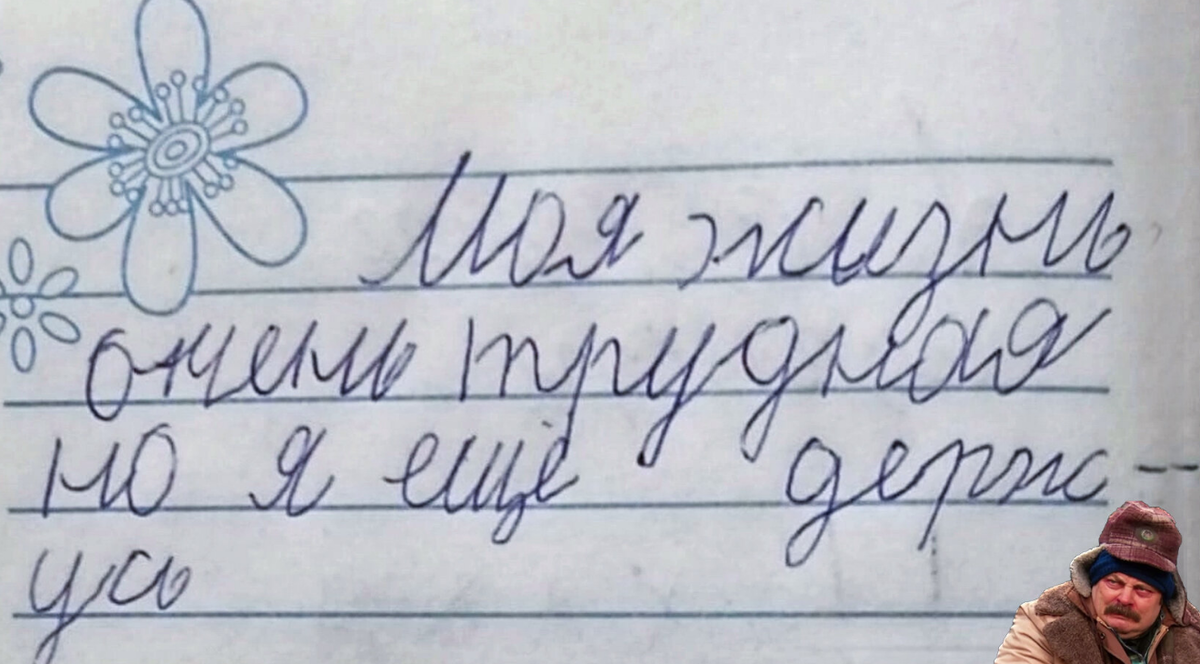 Моя жизнь
очень трудная
но я ещё держ
усь